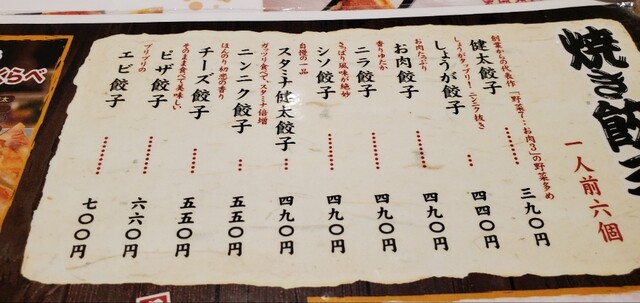 焼き餃子
一人前六個
創業からの代表作 「野菜7:お肉3」の野菜多め
健太餃子 三九〇円
しょうがタップリ!ニンニク抜き
しょうが餃子 四四〇円
お肉たっぷり
お肉餃子 四九〇円
香りゆたか
ニラ餃子 四九〇円
さっぱり風味が絶妙
シソ餃子 四九〇円
自慢の一品
スタミナ健太餃子 四九〇円
ガッツリ食べて、スタミナ倍増
ニンニク餃子 五五〇円
ほんのり初恋の香り
チーズ餃子 五五〇円
そのまま食べて美味しい
ピザ餃子 六六〇円
プリプリの
エビ餃子 七〇〇円
くらべ